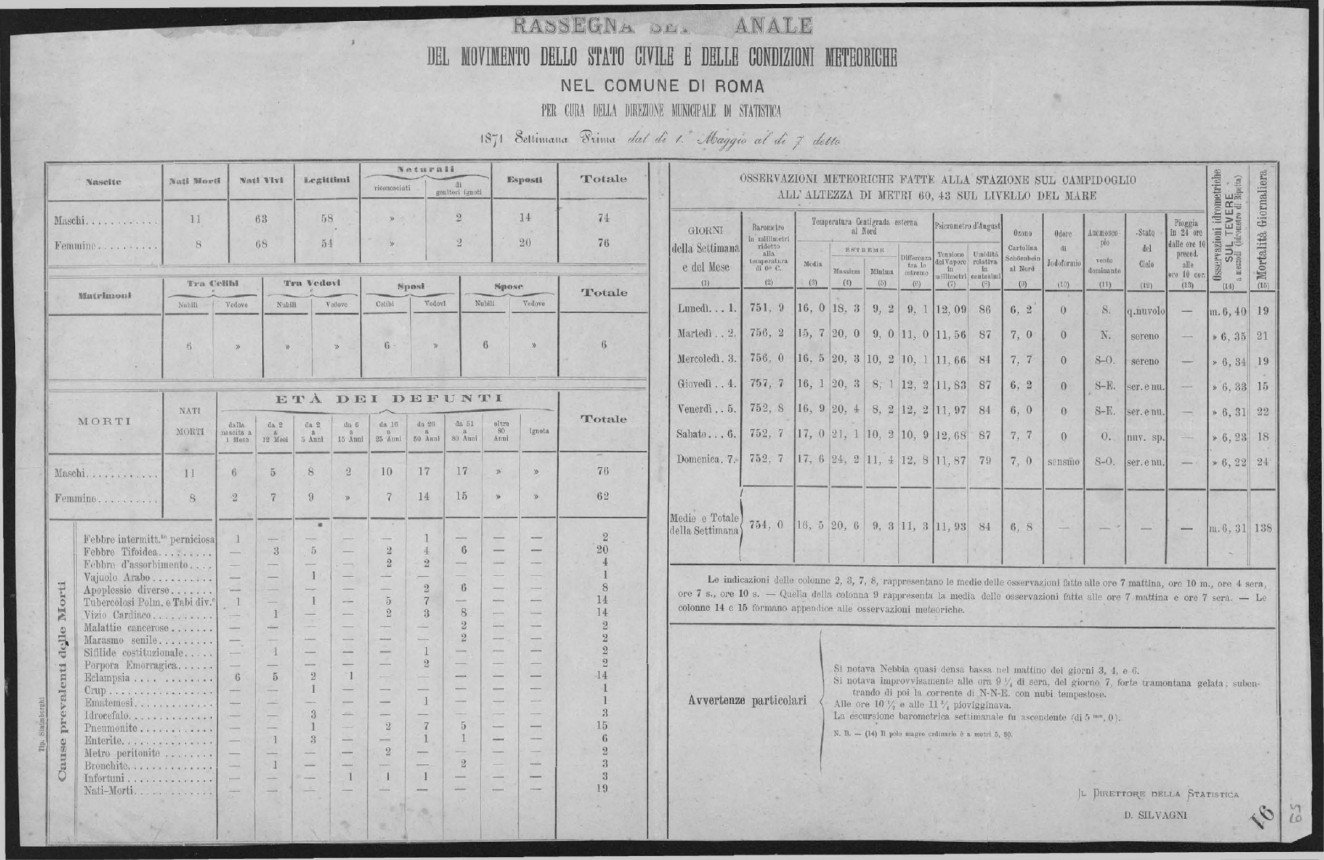 RASSEGNA SE ANALE
DEL MOVIMENTO DELLO STATO CIVILE E DELLE CONDIZIONI METEORICHE
NEL COMUNE DI ROMA
PER CURA DELLA DIREZIONE MUNICIPALE DI STATISTICA
1871 Settimana Prima dal dì 1.º Maggio al dì 7 detto
Nascite Nati Morti Nati Vivi Legittimi Naturali Esposti Totale
riconosciuti di genitori ignoti
Maschi 11 63 58 » 2 14 74
Femmine 8 68 54 » 2 20 76
Matrimoni Tra Celibi Tra Vedovi Sposi Spose Totale
Nubili Vedove Nubili Vedove Celibi Vedovi Nubili Vedove
6 » » » 6 » 6 » 6
MORTI NATI MORTI ETÀ DEI DEFUNTI Totale
dalla nascita a 1 Mese da 2 a 12 Mesi da 2 a 5 Anni da 6 a 15 Anni da 16 a 25 Anni da 26 a 50 Anni da 51 a 80 Anni oltre 80 Anni Ignota
Maschi 11 6 5 8 2 10 17 17 » » 76
Femmine 8 2 7 9 » 7 14 15 » » 62
Cause prevalenti delle Morti
Febbre intermitt.te perniciosa 1 — — — — 1 — — — 2
Febbre Tifoidea — 3 5 — 2 4 6 — — 20
Febbre d'assorbimento — — — — 2 2 — — — 4
Vajuolo Arabo — — 1 — — — — — — 1
Apoplessie diverse — — — — — 2 6 — — 8
Tubercolosi Polm. e Tabi div.e 1 — 1 — 5 7 — — — 14
Vizio Cardiaco — 1 — — 2 3 8 — — 14
Malattie cancerose — — — — — — 2 — — 2
Marasmo senile — — — — — — 2 — — 2
Sifilide costituzionale — 1 — — — 1 — — — 2
Porpora Emorragica — — — — — 2 — — — 2
Eclampsia 6 5 2 1 — — — — — 14
Crup — — 1 — — — — — — 1
Ematemesi — — — — — 1 — — — 1
Idrocefalo — — 3 — — — — — — 3
Pneumonite — — 1 — 2 7 5 — — 15
Enterite — 1 3 — — 1 1 — — 6
Metro peritonite — — — — 2 — — — — 2
Bronchite — 1 — — — — 2 — — 3
Infortuni — — — 1 1 1 — — — 3
Nati-Morti — — — — — — — — — 19
OSSERVAZIONI METEORICHE FATTE ALLA STAZIONE SUL CAMPIDOGLIO
ALL'ALTEZZA DI METRI 60, 43 SUL LIVELLO DEL MARE
GIORNI della Settimana e del Mese (1)
Barometro in millimetri ridotto alla temperatura di 0º C. (2)
Temperatura Centigrada esterna al Nord
Media (3)
ESTREME
Massima (4) Minima (5)
Differenza tra le estreme (6)
Psicrometro d'August
Tensione del Vapore in millimetri (7)
Umidità relativa in centesimi (8)
Ozono Cartolina Schönbein al Nord (9)
Odore di Jodoformio (10)
Anemoscopio vento dominante (11)
Stato del Cielo (12)
Pioggia in 24 ore dalle ore 10 preced. alle ore 10 cor. (13)
Osservazioni idrometriche SUL TEVERE a mezzodì (idrometro di Ripetta) (14)
Mortalità Giornaliera (15)
Lunedì 1. 751, 9 16, 0 18, 3 9, 2 9, 1 12, 09 86 6, 2 0 S. q.nuvolo — m. 6, 40 19
Martedì 2. 756, 2 15, 7 20, 0 9, 0 11, 0 11, 56 87 7, 0 0 N. sereno — » 6, 35 21
Mercoledì 3. 756, 0 16, 5 20, 3 10, 2 10, 1 11, 66 84 7, 7 0 S-O. sereno — » 6, 34 19
Giovedì 4. 757, 7 16, 1 20, 3 8, 1 12, 2 11, 83 87 6, 2 0 S-E. ser. e nu. — » 6, 33 15
Venerdì 5. 752, 8 16, 9 20, 4 8, 2 12, 2 11, 97 84 6, 0 0 S-E. ser. e nu. — » 6, 31 22
Sabato 6. 752, 7 17, 0 21, 1 10, 2 10, 9 12, 68 87 7, 7 0 O. nuv. sp. — » 6, 23 18
Domenica 7. 752, 7 17, 6 24, 2 11, 4 12, 8 11, 87 79 7, 0 sensmo S-O. ser. e nu. — » 6, 22 24
Medie e Totale della Settimana 754, 0 16, 5 20, 6 9, 3 11, 3 11, 93 84 6, 8 — — — — m. 6, 31 138
Le indicazioni delle colonne 2, 3, 7, 8, rappresentano le medie delle osservazioni fatte alle ore 7 mattina, ore 10 m., ore 4 sera,
ore 7 s., ore 10 s. — Quella della colonna 9 rappresenta la media delle osservazioni fatte alle ore 7 mattina e ore 7 sera. — Le
colonne 14 e 15 formano appendice alle osservazioni meteoriche.
Avvertenze particolari
Si notava Nebbia quasi densa bassa nel mattino dei giorni 3, 4, e 6.
Si notava improvvisamente alle ore 9 ½ di sera, del giorno 7, forte tramontana gelata, suben-
trando di poi la corrente di N-N-E. con nubi tempestose.
Alle ore 10 ½ e alle 11 ¾ piovigginava.
La escursione barometrica settimanale fu ascendente (di 5 mm, 0).
N. B. — (14) Il pelo magro ordinario è a metri 5,
IL DIRETTORE DELLA STATISTICA
D. SILVAGNI
16